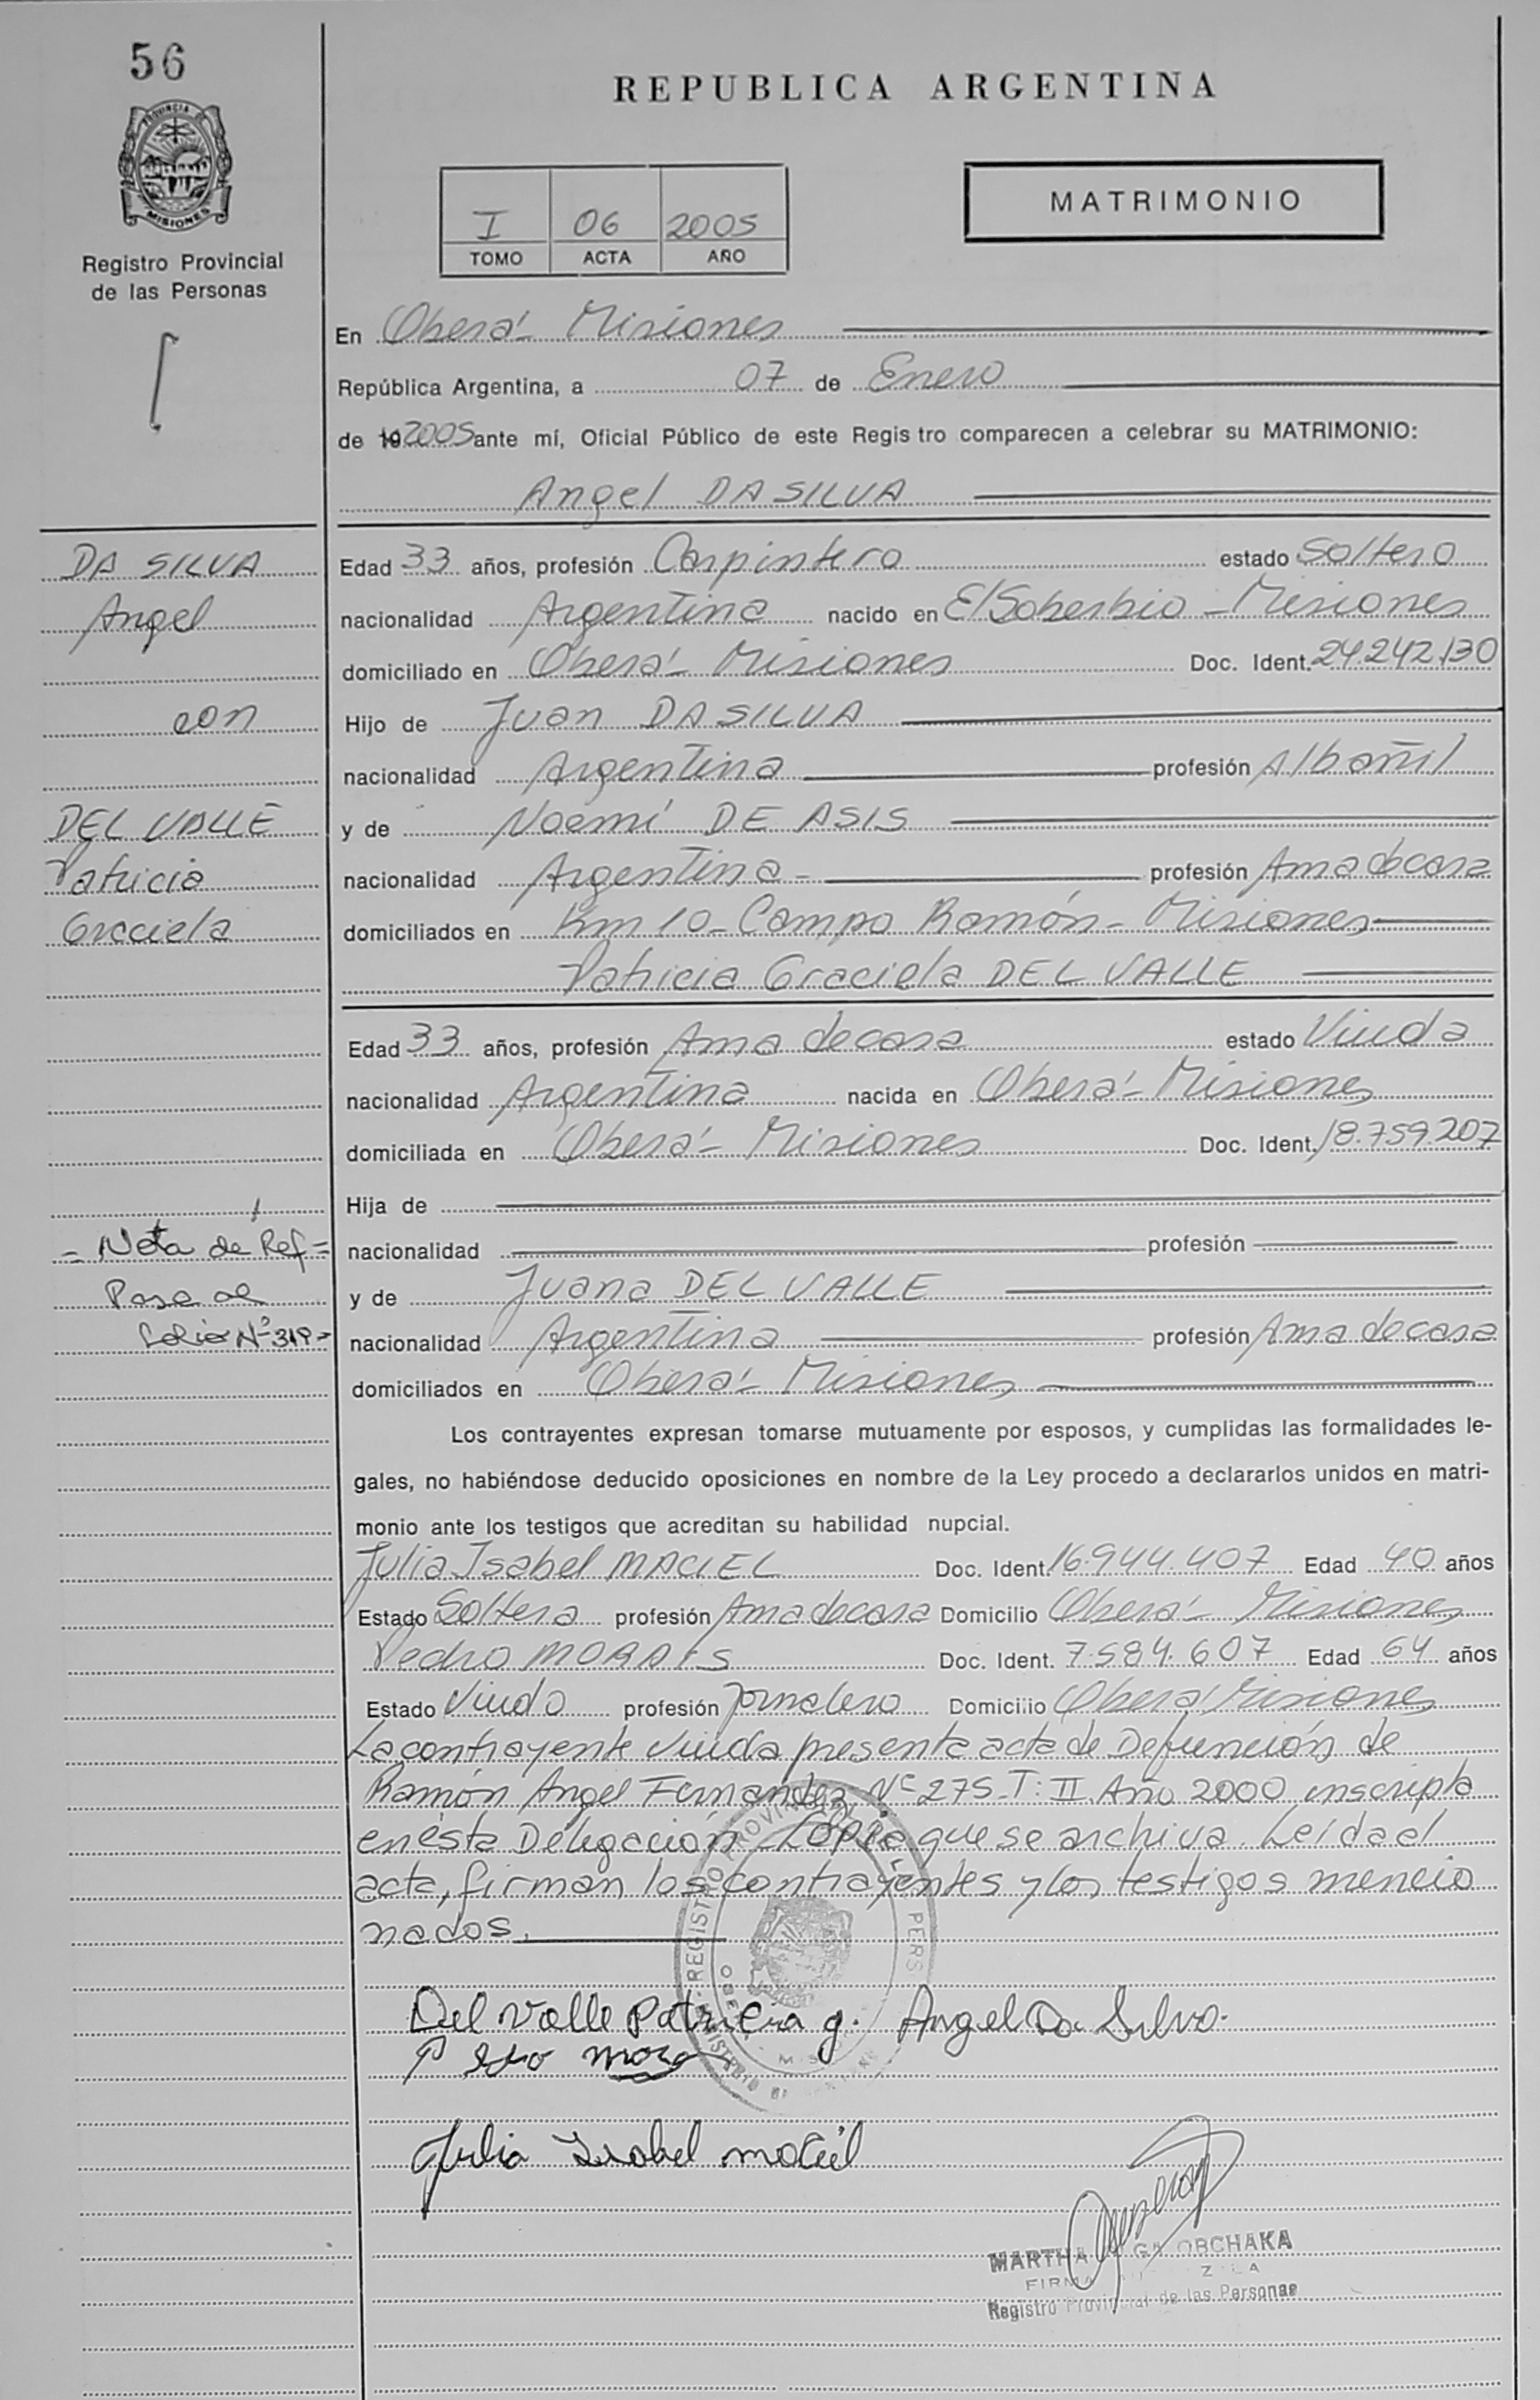 56
REPUBLICA ARGENTINA
PROVINCIA DE
MISIONES
Registro Provincial
de las Personas
I 06 2005
TOMO ACTA AÑO
MATRIMONIO
En Oberá - Misiones
República Argentina, a 07 de Enero
de 19 2005 ante mí, Oficial Público de este Regis tro comparecen a celebrar su MATRIMONIO:
Angel DA SILVA
DA SILVA
Angel
con
DEL VALLE
Patricia
Graciela
Edad 33 años, profesión Carpintero estado Soltero
nacionalidad Argentina nacido en El Soberbio - Misiones
domiciliado en Oberá - Misiones Doc. Ident. 24.242.130
Hijo de Juan DA SILVA
nacionalidad Argentina profesión Albañil
y de Noemí DE ASIS
nacionalidad Argentina - profesión Ama de casa
domiciliados en Km 10 - Campo Ramón - Misiones
Patricia Graciela DEL VALLE
Edad 33 años, profesión Ama de casa estado Viuda
nacionalidad Argentina nacida en Oberá - Misiones
domiciliada en Oberá - Misiones Doc. Ident. 18.759.207
Hija de
- Nota de Ref =
Pasa al
Folio Nº 319 -
nacionalidad profesión
y de Juana DEL VALLE
nacionalidad Argentina profesión Ama de casa
domiciliados en Oberá - Misiones
Los contrayentes expresan tomarse mutuamente por esposos, y cumplidas las formalidades le-
gales, no habiéndose deducido oposiciones en nombre de la Ley procedo a declararlos unidos en matri-
monio ante los testigos que acreditan su habilidad nupcial.
Julia Isabel MACIEL Doc. Ident. 16.944.407 Edad 40 años
Estado Soltera profesión Ama de casa Domicilio Oberá - Misiones
Pedro MORAIS Doc. Ident. 7.584.607 Edad 64 años
Estado Viudo profesión Jornalero Domicilio Oberá Misiones
La contrayente viuda presenta acta de Defunción de
Ramón Angel Fernandez Nº 275 - T: II Año 2000 inscripta
en ésta Delegación - Copia que se archiva. Leída el
acta, firman los contrayentes y los testigos mencio
nados.
REGISTRO PROVINCIAL DE LAS PERS
Del Valle Patricia g. Angel Da Silva.
Julia Isabel maciel
MARTHA OLGA ORCHAKA
FIRMA
Registro Provincial de las Personas